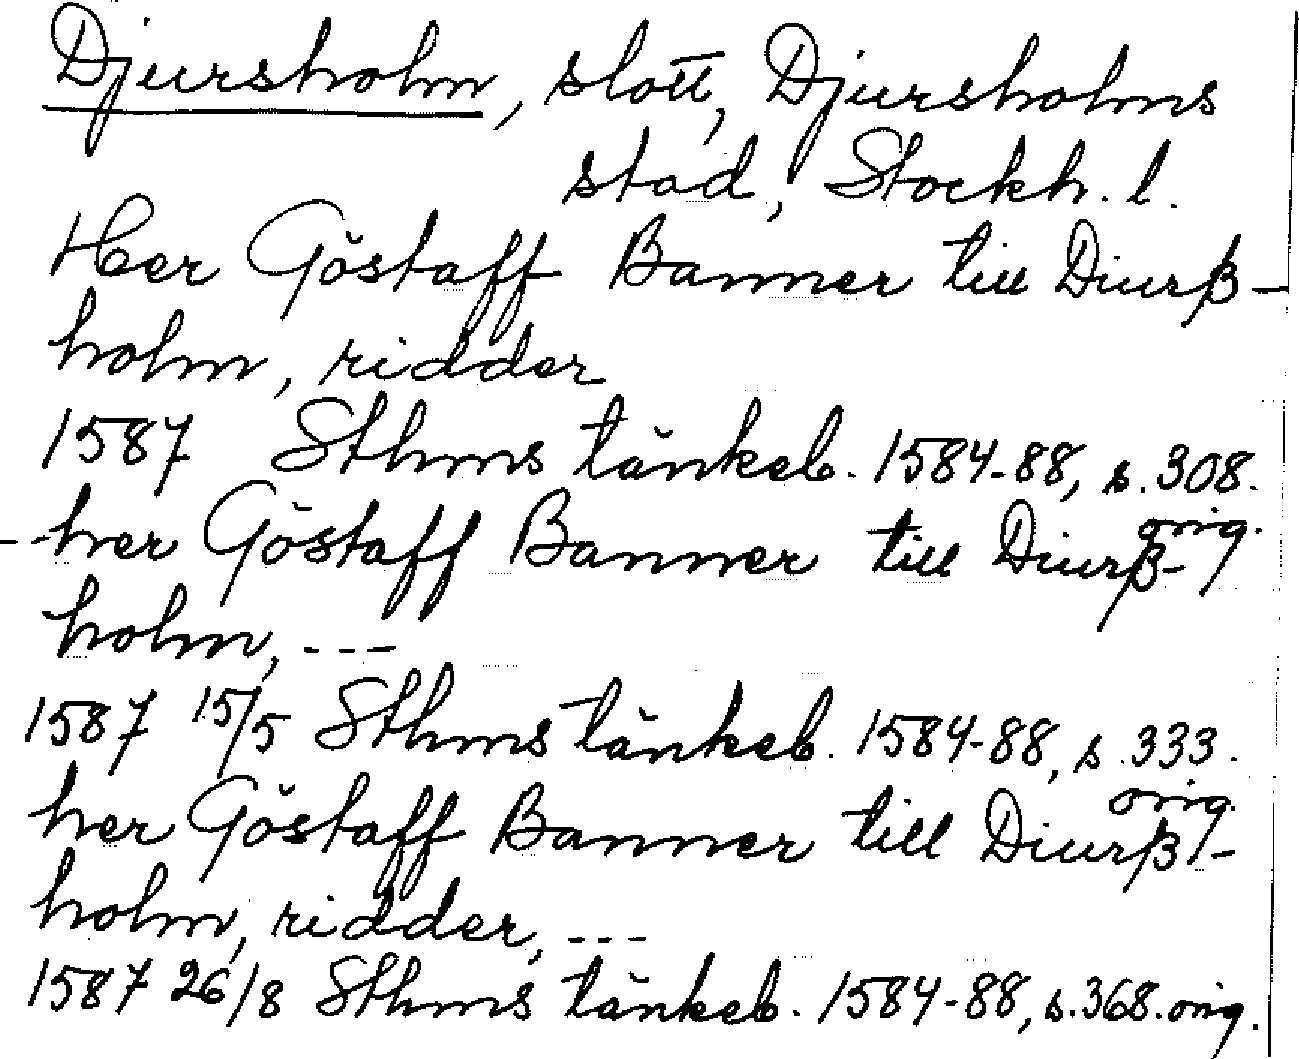 Djursholm, slott, Djursholms
stad, Stockh. l.
Her Göstaff Banner till Diurß-
holm, ridder
1587 Sthms tänkeb. 1584-88, s. 308.
orig.
- her Göstaff Banner till Diurß-
holm, ---
1587 15/5 Sthms tänkeb. 1584-88, s. 333.
orig.
her Göstaff Banner till Diurß-
holm, ridder, ---
1587 26/8 Sthms tänkeb. 1584-88, s. 368. orig.